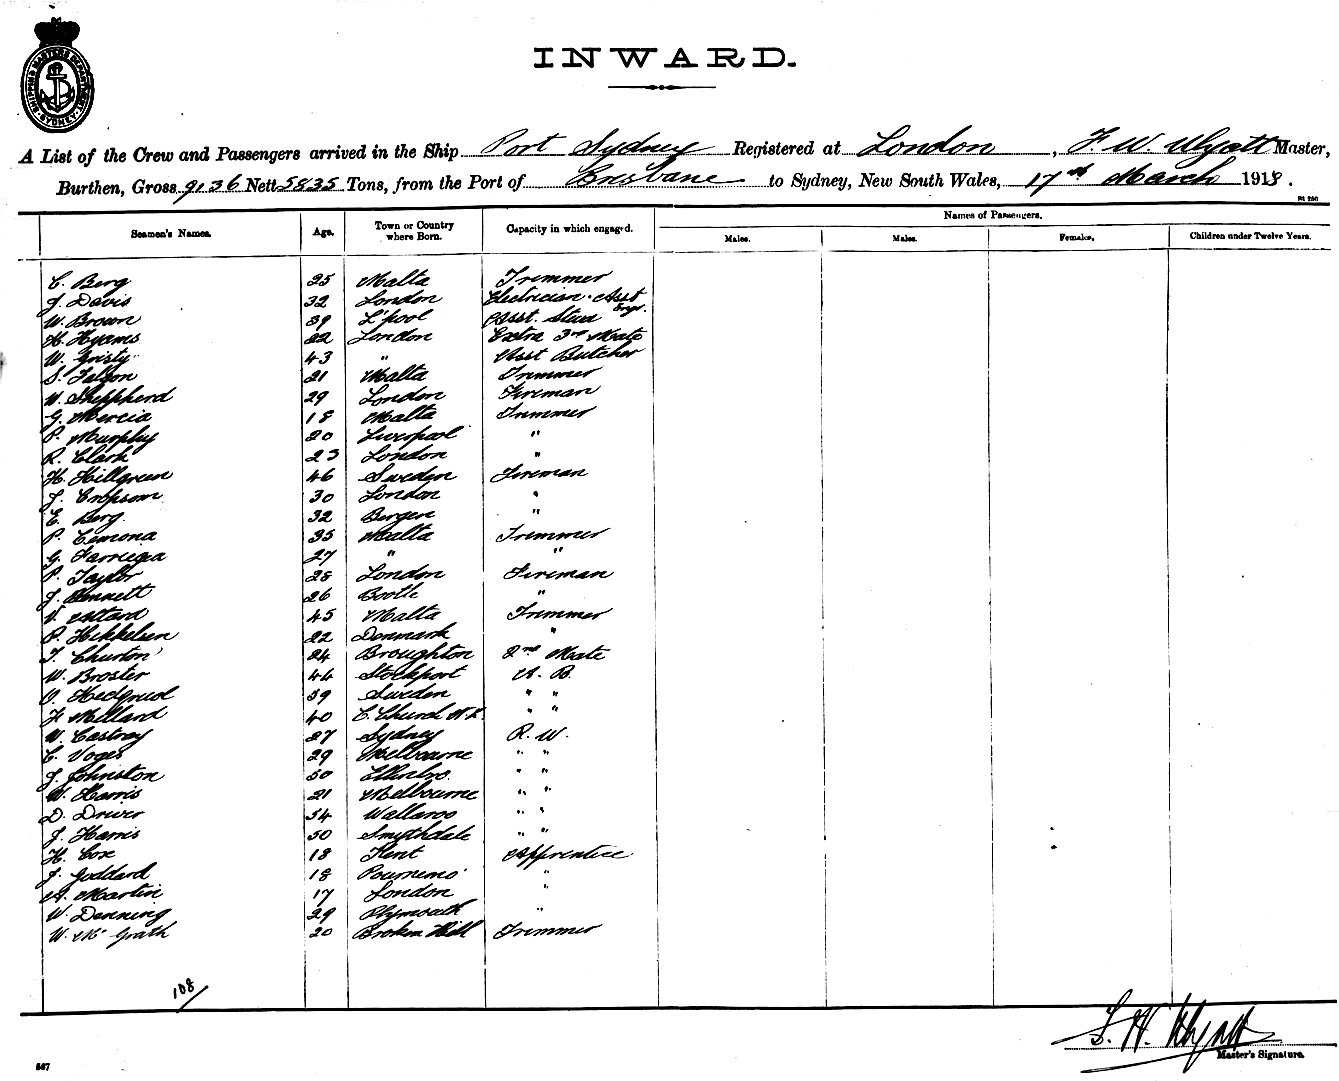 SHIPPING MASTERS DEPARTMENT SYDNEY
INWARD.
A List of the Crew and Passengers arrived in the Ship Port Sydney Registered at London, F. W. Wyatt Master,
Burthen, Gross 9136 Nett 5835 Tons, from the Port of Brisbane to Sydney, New South Wales, 17th March 1918.
Names of Passengers.
Seamen's Names. Age. Town or Country where Born. Capacity in which engaged. Males. Males. Females. Children under Twelve Years.
C. Berg 25 Malta Trimmer
J. Davis 32 London Electrician. Asst Engr.
W. Brown 39 L'pool Asst. Stew
H. Hyams 22 London Extra 3rd Mate
W. 43 " Asst Butcher
S. Falzon 21 Malta Trimmer
W. Sheppherd 29 London Fireman
G. Mercia 18 Malta Trimmer
P. Murphy 20 Liverpool "
R. Clark 23 London "
H. Hillgreen 46 Sweden Fireman
J. 30 London "
E. Berg. 32 Bergen "
P. Cemona 35 Malta Trimmer
G. Farrugia 27 " "
P. Taylor 28 London Fireman
J. Bennett 26 Bootle "
V. Attard 45 Malta Trimmer
P. Hikkelsen 22 Denmark "
T. Churton 24 Broughton 2nd Mate
W. Broster 44 Stockport A. B.
O. 39 Sweden " "
F. Millard 40 C. Church N.Z. " "
W. Castray 27 Sydney R. W.
C. Voges 29 Melbourne " "
J. Johnston 50 " "
W. Harris 21 Melbourne " "
D. Driver 54 Wallaroo " "
J. Harris 50 Smythdale " "
H. Cox 18 Kent Apprentice
J. Goddard 18 "
A. Martin 17 London "
W. Denning 29 Plymouth "
W. McGrath 20 Broken Hill Trimmer
108
F. W. Wyatt
Master's Signature.
567